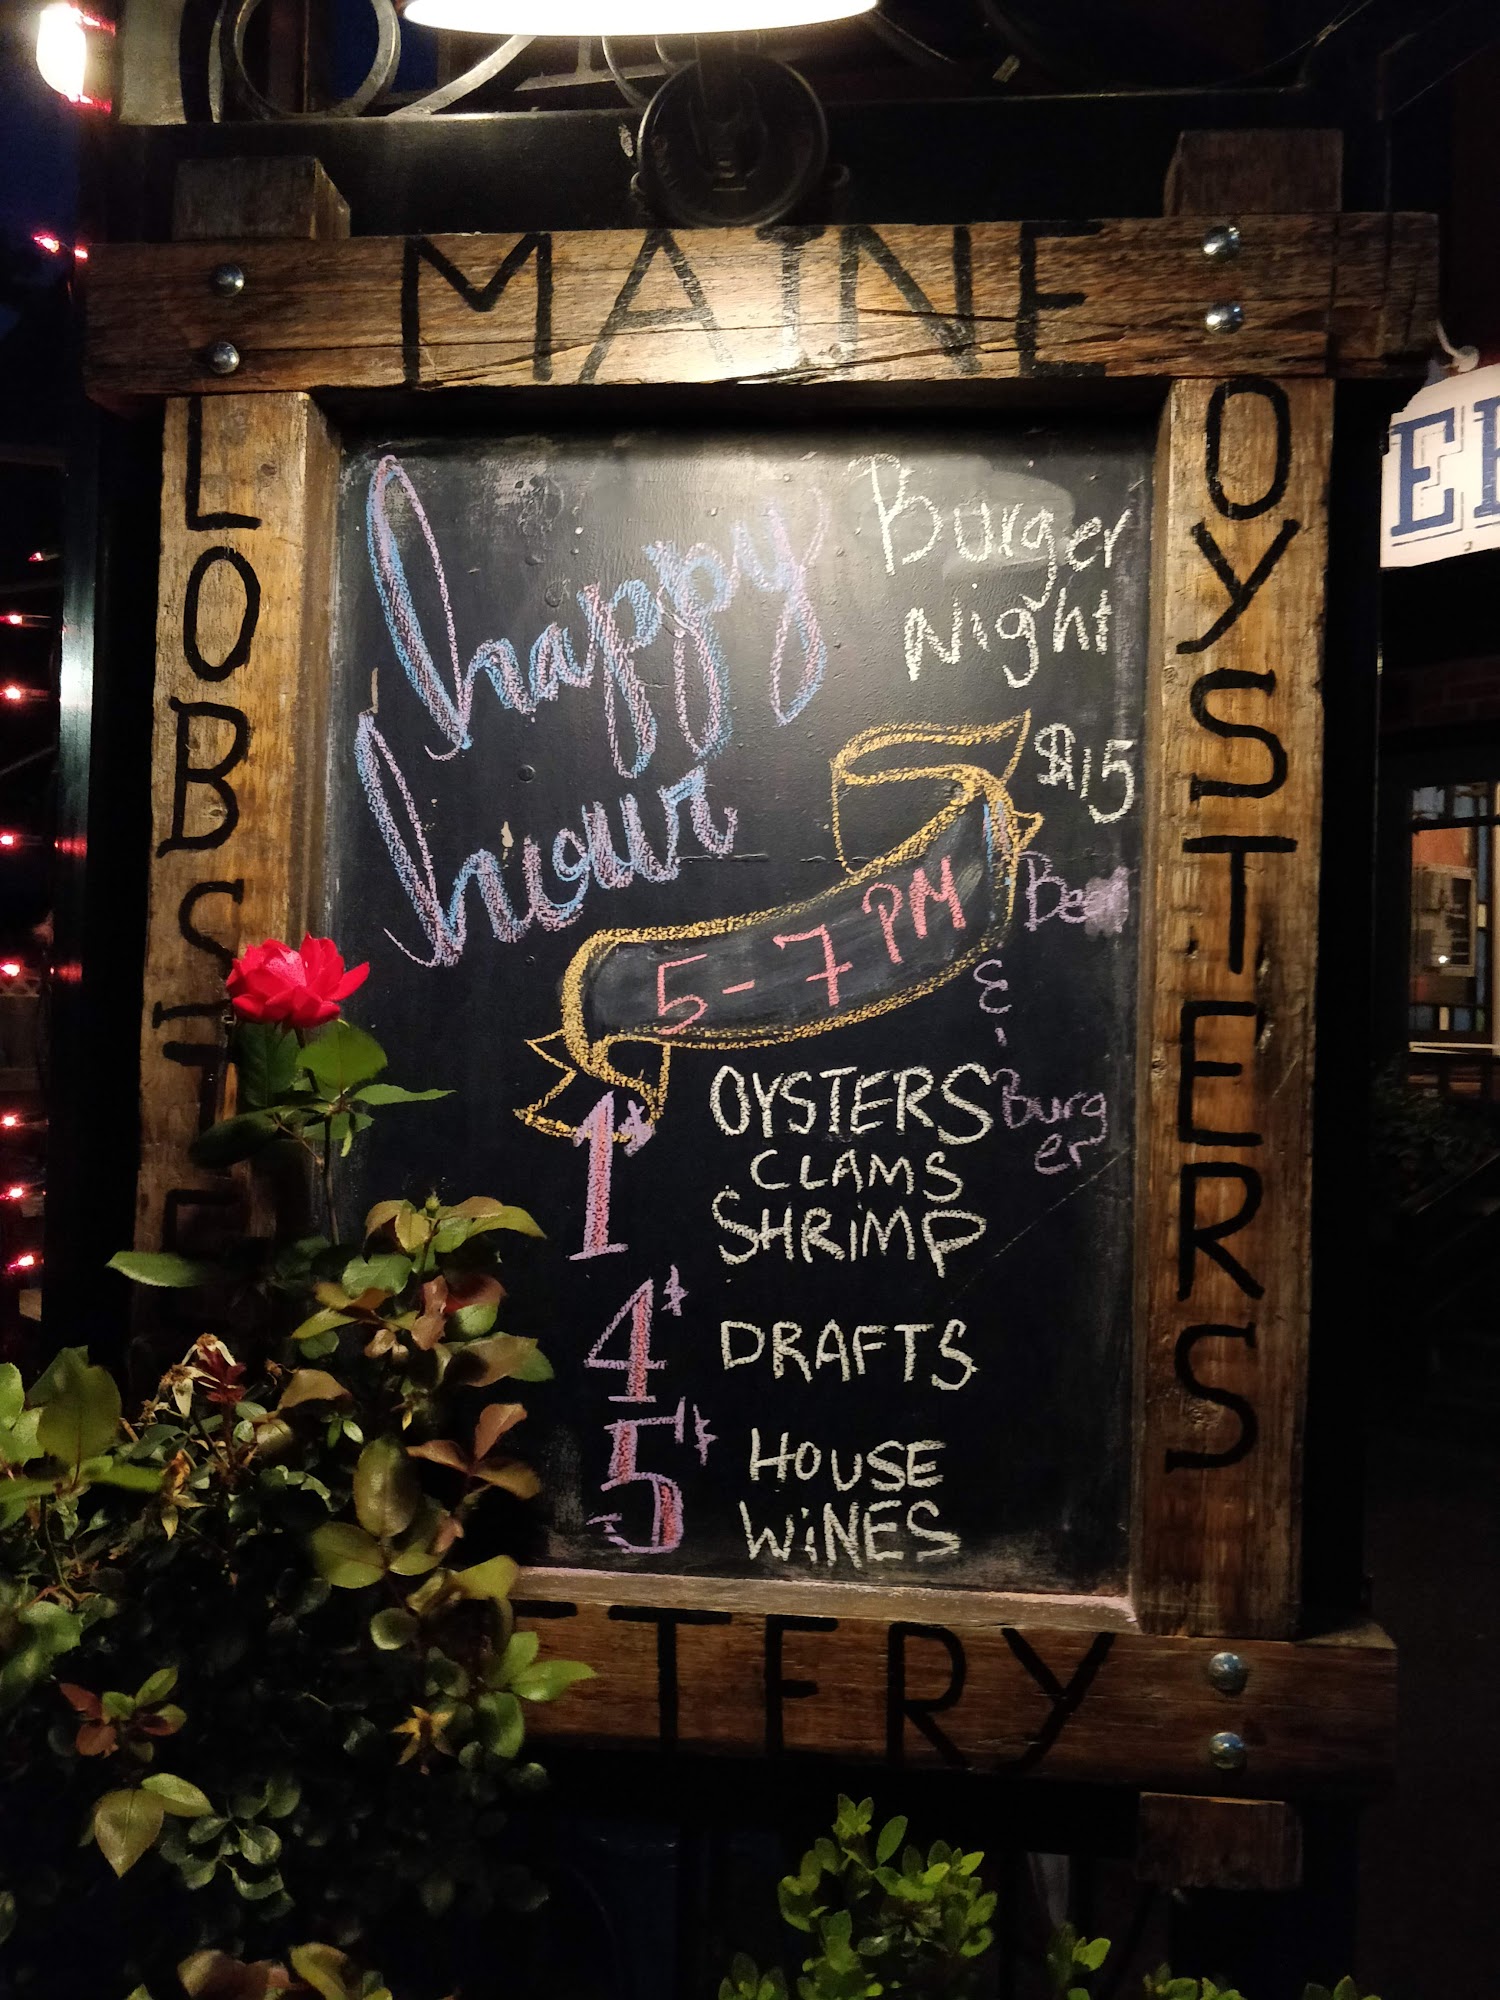 MAINE
LOBSTE
OYSTERS
happy
hour
5-7 PM
Burger
Night
$15
Beer
&
Burg
er
1$ OYSTERS
CLAMS
SHRiMP
4$ DRAFTS
5$ HOUSE
WiNES
TERY